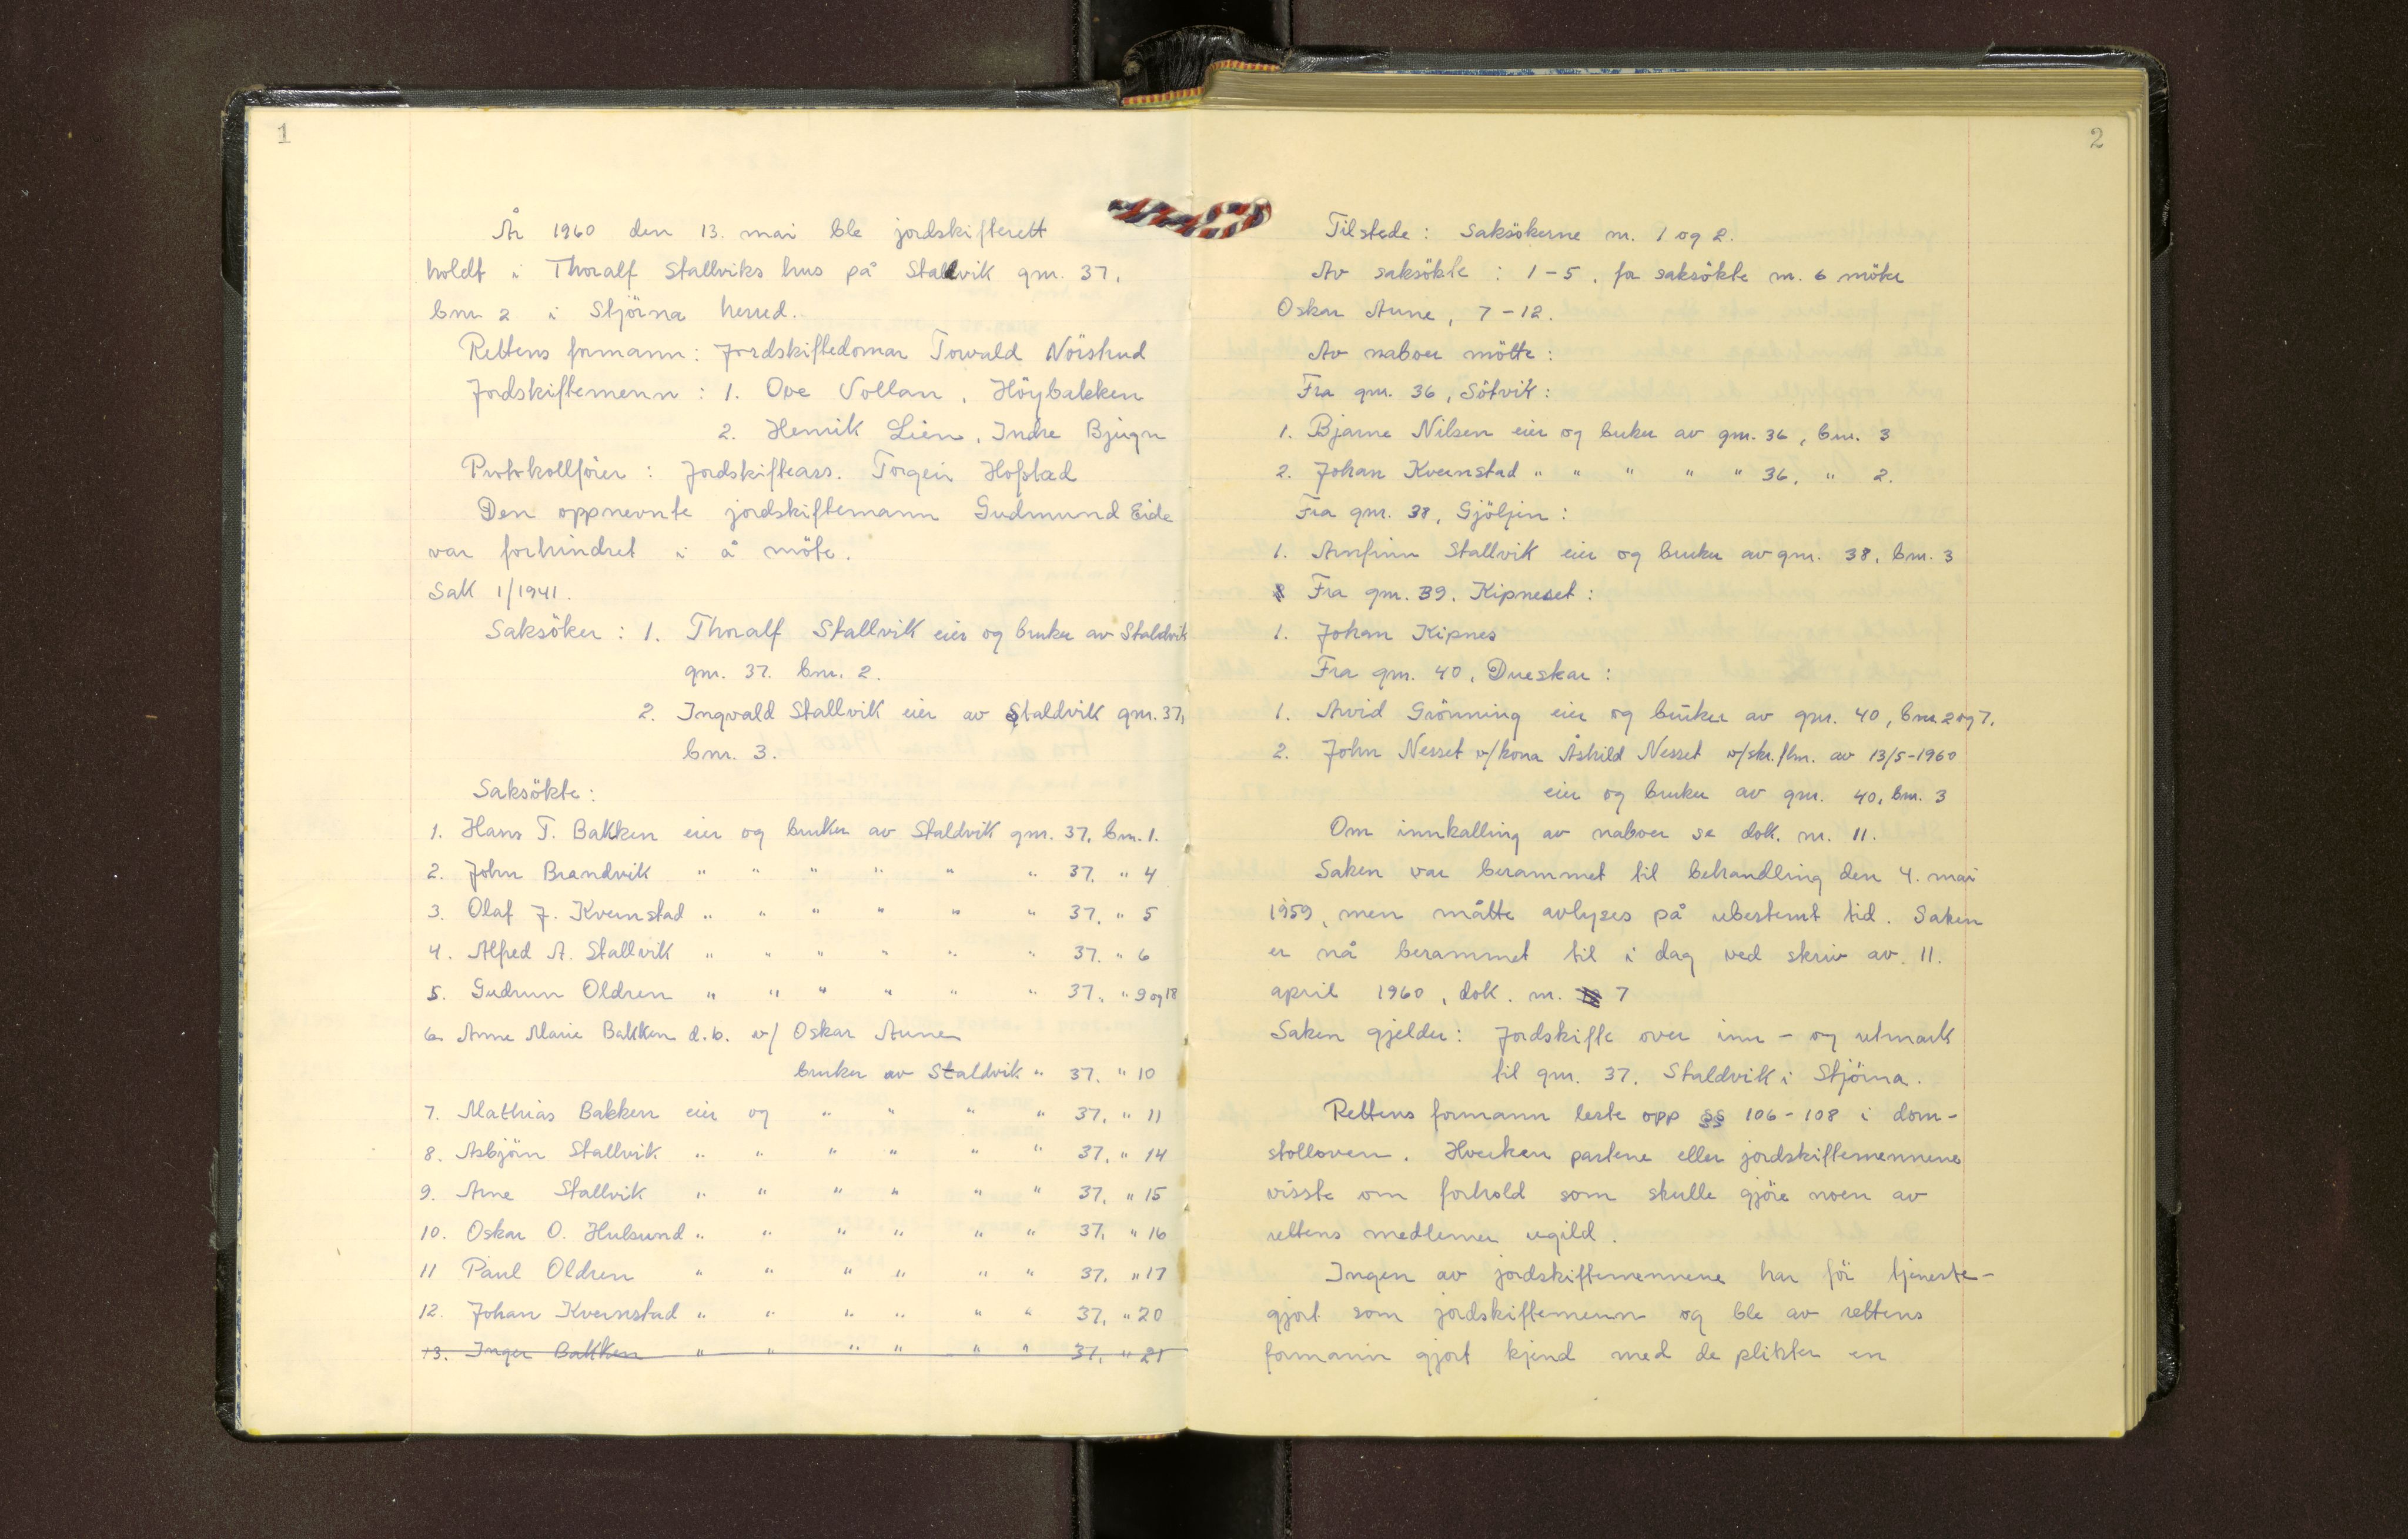 1
År 1960 den 13. mai ble jordskifterett
holdt i Thoralf Stallviks hus på Stallvik gnr. 37,
bnr 2 i Stjörna herred.
Rettens formann: Jordskiftedomar Torvald Nörstrud
Jordskiftemenn: 1. Ove Vollan, Höybakken
2. Henrik Lien, Indre Bjugn
Protokollförer: Jordskifteass. Torgeir Hofstad
Den oppnevnte jordskiftemann Gudmund Eide
var forhindret i å möte.
Sak 1/1941.
Saksöker: 1. Thoralf Stallvik eier og bruker av Staldvik
gnr. 37. bnr. 2.
2. Ingvald Stallvik eier av Staldvik gnr. 37,
bnr. 3.
Saksökte:
1. Hans T. Bakken eier og bruker av Staldvik gnr. 37, bnr. 1.
2. John Brandvik " " " " " " 37. " 4
3. Olaf J. Kvernstad " " " " " " 37. " 5
4. Alfred A. Stallvik " " " " " " 37. " 6
5. Gudrun Oldren " " " " " " 37. " 9 og 18
6. Anne Marie Bakken d.b. v/ Oskar Aune
bruker av Staldvik " 37. " 10
7. Mathias Bakken eier og " " " " 37. " 11
8. Asbjörn Stallvik " " " " " " 37. " 14
9. Arne Stallvik " " " " " " 37. " 15
10. Oskar O. Hulsund " " " " " " 37. " 16
11 Paul Oldren " " " " " " 37. " 17
12. Johan Kvernstad " " " " " " 37. " 20
13. Inger Bakken " " " " " " 37. " 21
2
Tilstede: Saksökerne nr. 1 og 2.
Av saksökte: 1-5, for saksökte nr. 6 möter
Oskar Aune, 7-12.
Av naboer mötte:
Fra gnr. 36, Sötvik:
1. Bjarne Nilsen eier og bruker av gnr. 36, bnr. 3
2. Johan Kvernstad " " " " " 36, " 2.
Fra gnr. 38, Gjöljin:
1. Arnfinn Stallvik eier og bruker av gnr. 38, bnr. 3
Fra gnr. 39. Kipneset:
1. Johan Kipnes
Fra gnr. 40, Dueskar:
1. Arvid Grönning eier og bruker av gnr. 40, bnr 2 og 7.
2. John Nesset v/kona Åshild Nesset v/skr. flm. av 13/5-1960
eier og bruker av gnr. 40, bnr. 3
Om innkalling av naboer se dok. nr. 11.
Saken var berammet til behandling den 4. mai
1959, men måtte avlyses på ubestemt tid. Saken
er nå berammet til i dag ved skriv av 11.
april 1960, dok. nr. 7
Saken gjelder: Jordskifte over inn- og utmark
til gnr. 37. Staldvik i Stjörna.
Rettens formann leste opp §§ 106-108 i dom-
stolloven. Hverken partene eller jordskiftemennene
visste om forhold som skulle gjöre noen av
rettens medlemer ugild.
Ingen av jordskiftemennene har för tjeneste-
gjort som jordskiftemenn og ble av rettens
formann gjort kjend med de plikter en